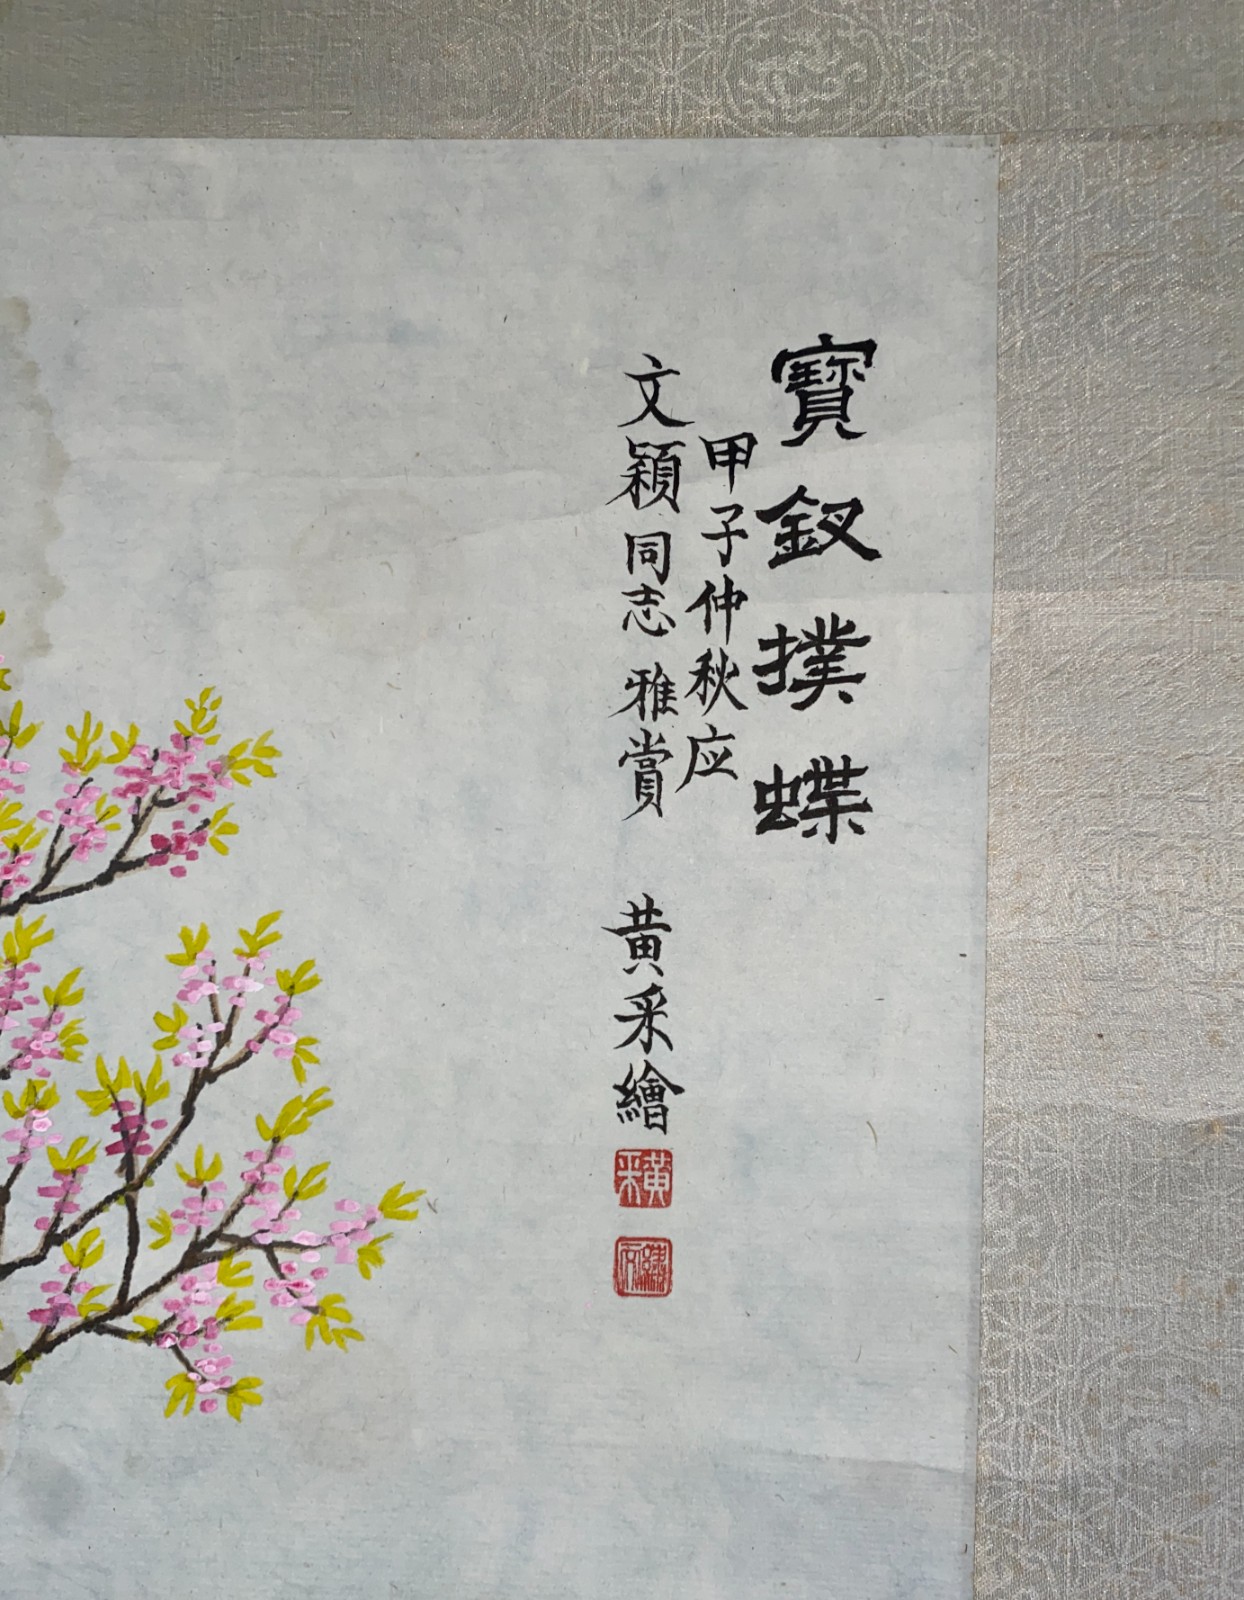 寶釵撲蝶
甲子仲秋应
文穎同志雅賞
黄采繪
黄采